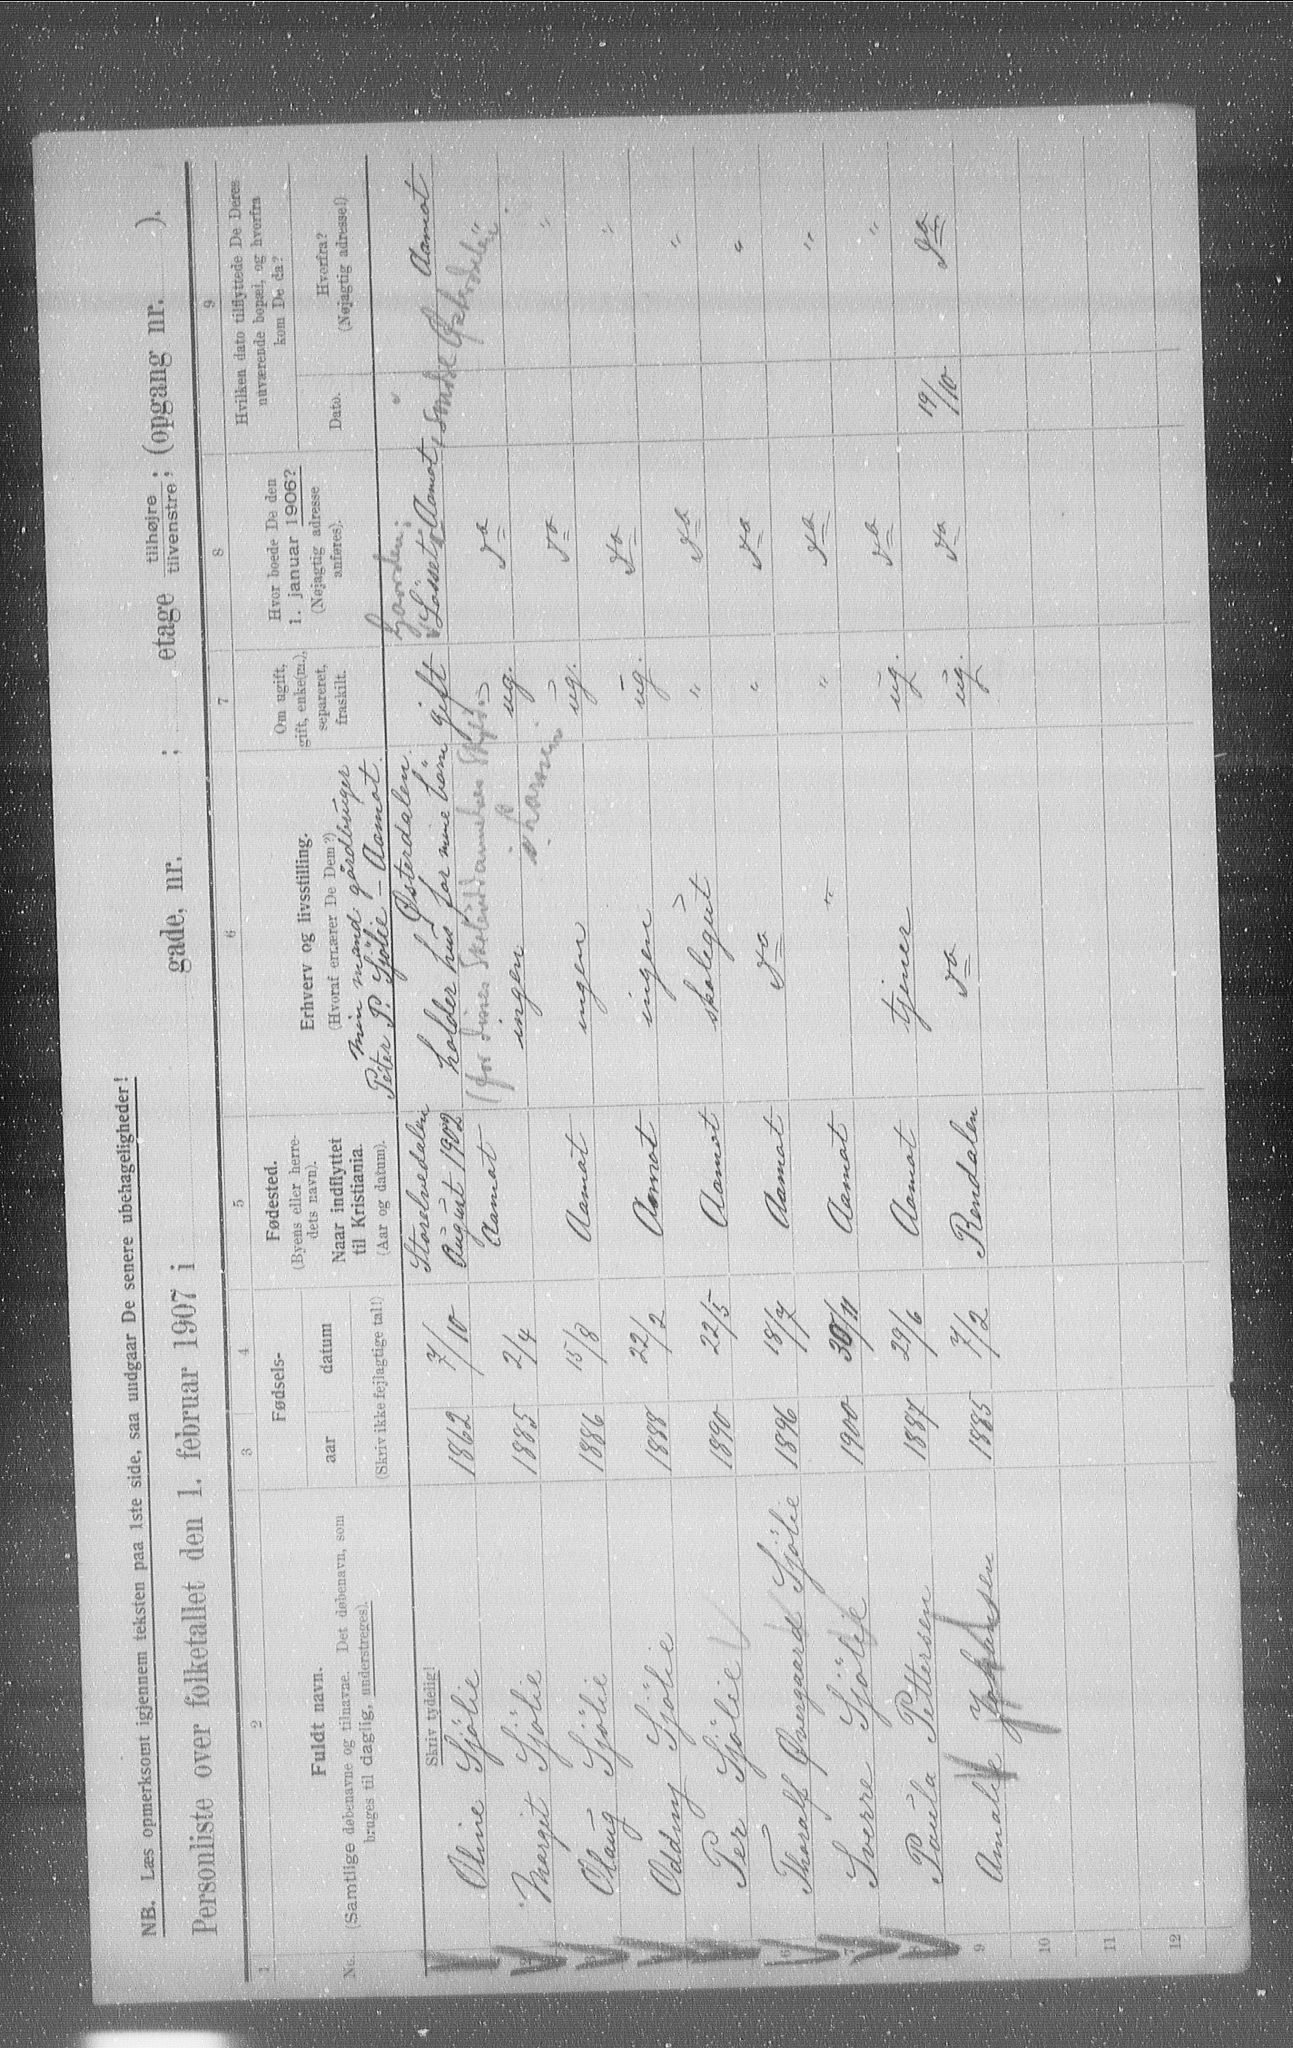 NB. Læs opmerksomt igjennem teksten paa 1ste side, saa undgaar De senere ubehageligheder!
Personliste over folketallet den 1. februar 1907 i gade, nr. ; etage tilhøjre / tilvenstre ; (opgang nr. ).
1 2 3 4 5 6 7 8 9
No.
Fuldt navn.
(Samtlige døbenavne og tilnavne. Det døbenavn, som
bruges til daglig, understreges).
Fødsels-
aar datum
(Skriv ikke fejlagtige tal!)
Fødested.
(Byens eller herre-
dets navn).
Naar indflyttet
til Kristiania.
(Aar og datum).
Erhverv og livsstilling.
(Hvoraf ernærer De Dem?)
Om ugift,
gift, enke(m.),
separeret,
fraskilt.
Hvor boede De den
1. januar 1906?
(Nøjagtig adresse
anføres).
Hvilken dato tilflyttede De Deres
nuværende bopæl, og hvorfra
kom De da?
Dato.
Hvorfra?
(Nøjagtig adresse!)
Skriv tydelig!
min mand gårdbruger
Peter P. Sjölie - Aamot.
Østerdalen.
Oline Sjölie 1862 7/10 Storelvedalen August 1902 holder hus for mine börn gift Gaarden Lösset, Aamot, Søndre Østerdalen " Aamot
Margit Sjölie 1885 2/4 Aamot ingen ug. do "
Olaug Sjölie 1886 15/8 Aamot ingen ug. do "
Oddny Sjölie 1888 22/2 Aamot ingen ug. do "
5 Per Sjölie 1890 22/5 Aamot skolegut " do "
6 Thoralf Øvergaard Sjölie 1896 18/7 Aamot do " do "
7 Sverre Sjölie 1900 30/11 Aamot " " do "
8 Paula Pettersen 1887 29/6 Aamot tjener ug. do "
9 Amalie Johansen 1885 7/2 Rendalen do ug. do 19/10 do
10
11
12